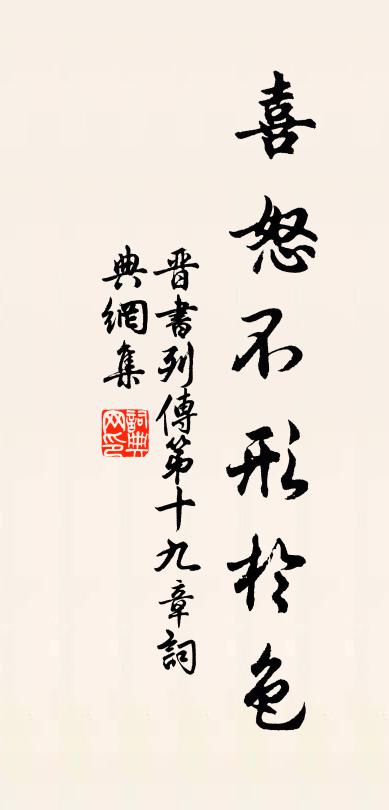 喜怒不形於色
晉書列傳第十九章詞
典網集
詞典網印